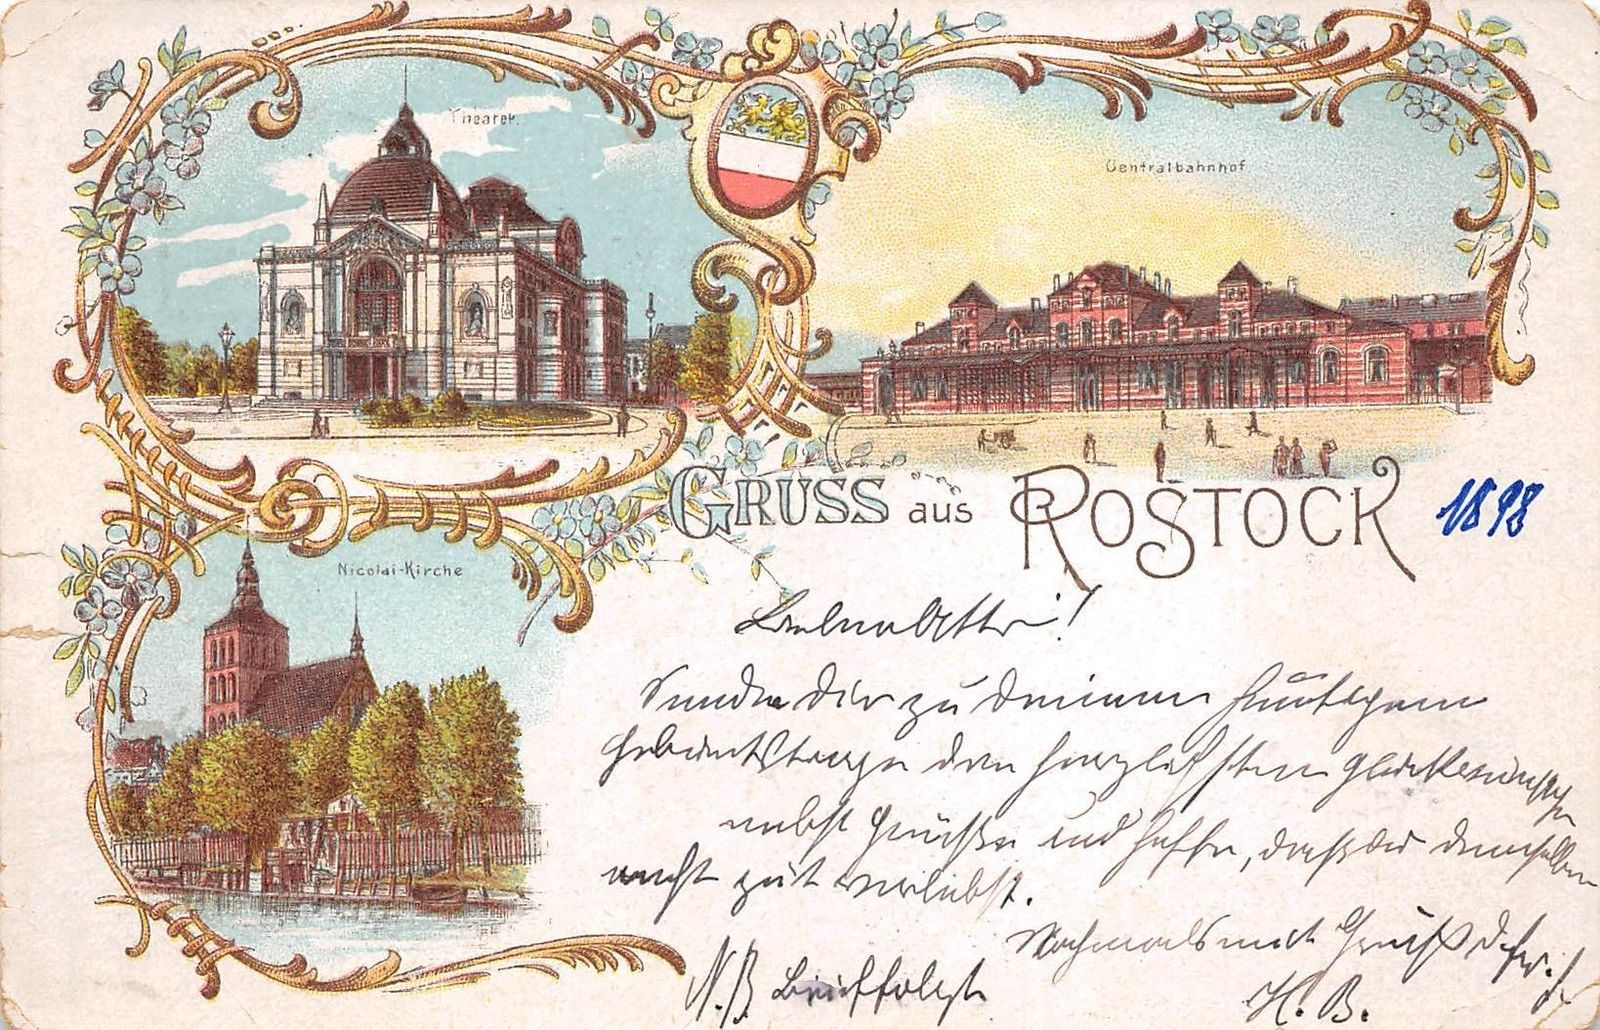 Theater.
Centralbahnhof
GRUSS aus ROSTOCK
1898
Nicolai-Kirche
Sende Dir zu Deinem heutigem
Geburtstage den herzlichsten Glückwunsch
nebst Grüße und hoffe, daß Du denselben
recht gut verlebst.
Nochmals mit Gruß
N.B. Brief folgt
H. B.